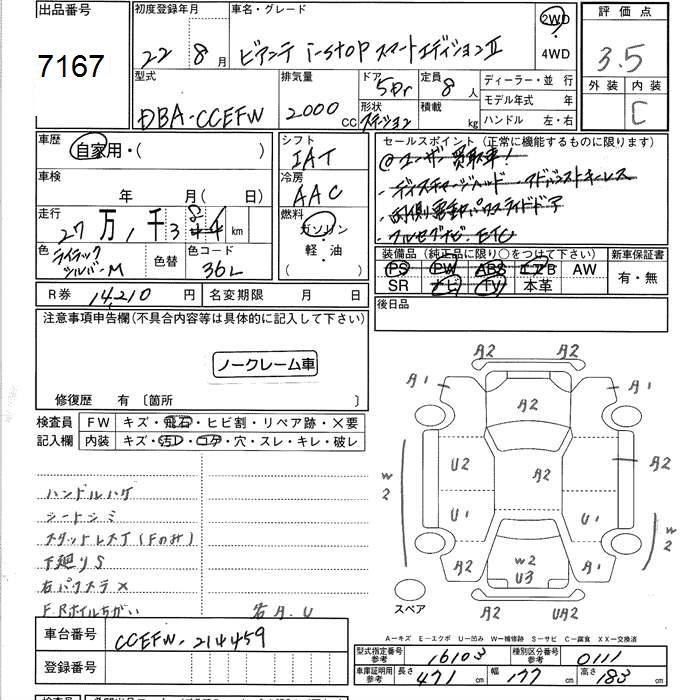 出品番号 初度登録年月 車名・グレード 2WD 評価点
7167 22 8月 ビアンテ i-stop スマートエディションⅡ 4WD 3.5
型式 排気量 ドア 5Dr 定員 8人 ディーラー・並行 外装 内装
DBA-CCEFW 2000cc 形状 ステーション 積載 kg モデル年式 年 C
ハンドル 左・右
車歴 シフト セールスポイント(正常に機能するものに限ります)
自家用・( ) IAT @ユーザー買取車!
車検 冷房 ・ディスチャージヘッド ・アドバンストキーレス
年 月( 日) AAC ・両側電動パワースライドドア
走行 燃料 ・フルセグナビ、ETC
27万, 千3 km ガソリン
色 色替 色コード 軽・油 装備品(純正品に限り○をつけて下さい) 新車保証書
M 36L ( ) PS PW ABS エアB AW 有・無
SR ナビ TV 本革
R券 14,210円 名変期限 月 日 後日品
注意事項申告欄(不具合内容等は具体的に記入して下さい)
ノークレーム車
修復歴 有 〔箇所 〕
検査員 FW キズ・飛石・ヒビ割・リペア跡・×要
記入欄 内装 キズ・汚レ・コゲ・穴・スレ・キレ・破レ
A2 A2
A1 A1
A2
U2 A2 A2
W2
U1 U1 W2
A2 W2 U3 A2
スペア U2 UA2
ハンドルハゲ
シートシミ
スタッドレスT(Fのみ)
下廻りS
右パワスラ×
F.Rホイルちがい 右A.U
A-キズ E-エクボ U-凹み W-補修跡 S-サビ C-腐食 XX-交換済
車台番号 CCEFW-214459
型式指定番号 参考 16103 種別区分番号 参考 0111
登録番号 車庫証明用 参考 長さ 471cm 幅 177cm 高さ 183cm